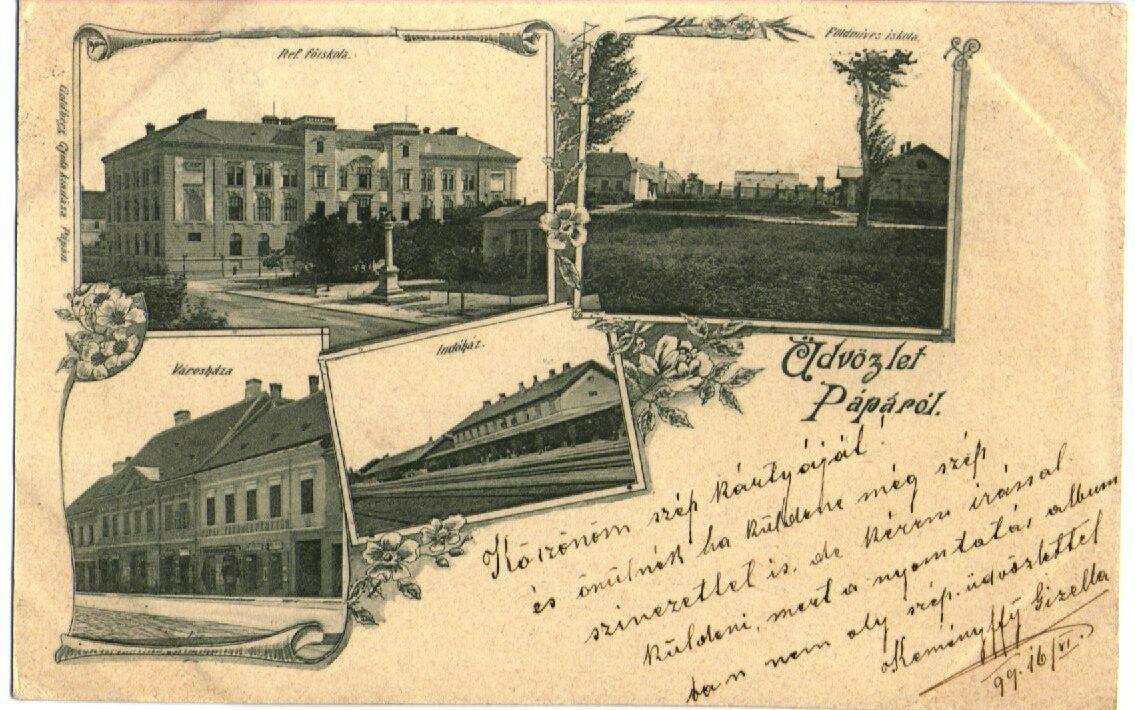 Ref. főiskola.
Földmíves iskola.
Városháza
Indóház.
Üdvözlet
Pápáról.
Köszönöm szép kártyáját!
és örülnék ha küldene még szép
szinezettel is, de kérem irással
küldeni, mert a nyomtatás album
ban nem oly szép. üdvözlettel
Keményffy Gizella
99. 16/VI.